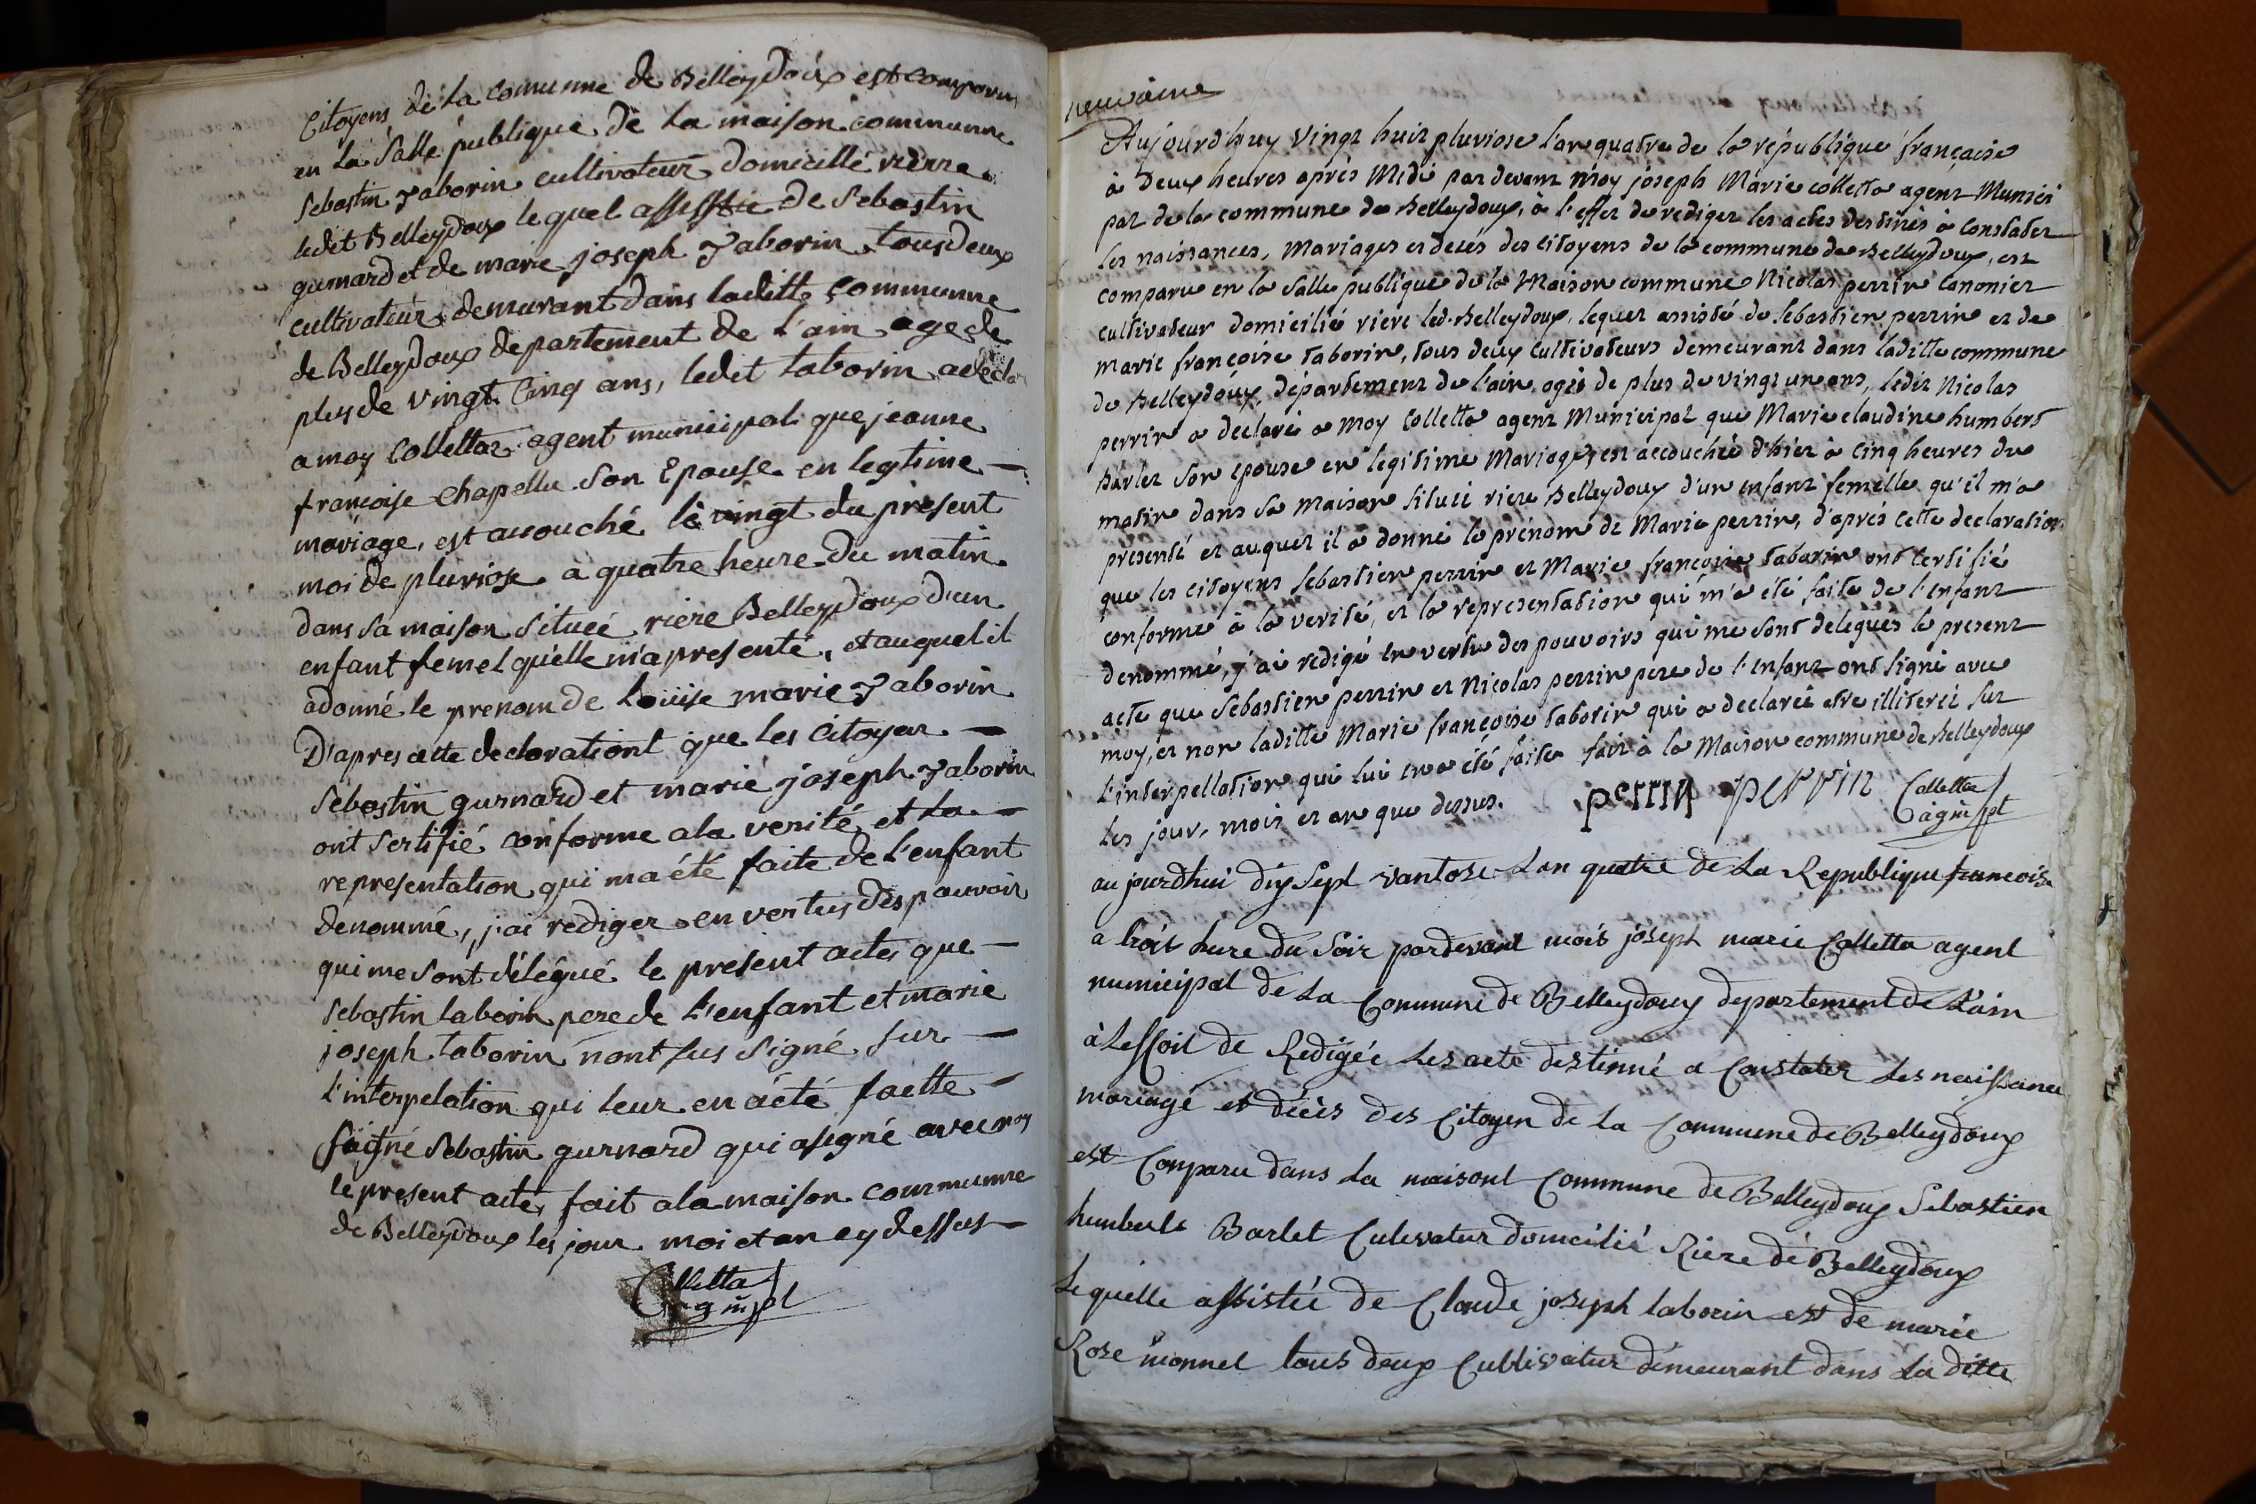 Citoyens de la comunne de Belleydoux est comparus
en la Salle publique de la maison communne
Sebastin Taborin cultivateur domicillé rierre
ledit Belleydoux lequel assesstée de Sebastin
gurnard et de marie joseph Taborin tous deux
cultivateur demurant dans laditte communne
de Belleydoux departement de L'ain age de
plus de vingt Cinq ans, ledit taborin a decla
a moy Collettaz agent municipal que jeanne
francoise Chapellu Son Epouse en legtime —
mariage, est accouché le vingt du present
moi de pluviose a quatre heure du matin
dans sa maison Situeé riere Belleydoux d'un
enfant femel quelle m'apresenté, et auquel il
adonné le prenom de Louise marie Taborin
D'apres cette declarationt que les Citoyen —
Sebastin gurnard et marie joseph Taborin
ont Sertifié conforme ala verité et la —
representation qui ma été faite de L'enfant
denommé, j'ai rediger en vertus des pouvoir
qui me sont délégué le present actes que —
Sebastin taborin pere de L'enfant et marie
joseph taborin nont sus Signé sur —
l'interpelation qui leur en áété faette —
Sebastin gurnard qui asigné avec moy
le present acte, fait ala maison communne
de Belleydoux les jour moi et an cy dessus —
Colletta
agm pl
neuvaime
Aujourd'huy Vingt huit pluviose l'an quatre de la république française
à deux heures après Midi par devant Moy joseph Marie colletta agent Munici
pal de la commune de Belleydoux, à l'effet de rediger les actes destinés à constater
les naissances, Mariages et décés des citoyens de la commune de Belleydoux, est
comparu en la Salle publique de la Maison commune Nicolas perrin Canonier
cultivateur domicilié riere led. Belleydoux, lequel assisté de Sebastien perrin et de
marie françoise taborin, tous deux cultivateurs demeurant dans laditte commune
de Belleydoux, département de l'ain agés de plus de vingt un ans, ledit Nicolas
perrin a declaré a moy Colletta agent Municipal que Marie claudine humbert
Barlet son epouse en legitime Mariage, est accouchée d'hier à cinq heures du
matin dans sa Maison située riere Belleydoux d'un enfant femelle qu'il m'a
presenté et auquel il a donné le prénom de Marie perrin, d'après cette declaration
que les citoyens Sebastien perrin et Marie françoise taborin ont certifié
conforme à la verité, et la representation qui m'a été faite de l'enfant
denommé, j'ai redigé en vertu des pouvoirs qui me sont délégués le present
acte que Sebastien perrin et Nicolas perrin pere de l'enfant ont signé avec
moy, et non laditte Marie françoise taborin qui a declaré etre illiteréé sur
l'interpellation qui lui en a été faite fait à la Maison commune de Belleydoux
les jour, mois et an que dessus. perrin perrin Colletta
agm pl
au jourdhui dix Sept vantose L'an quatre de La Republique francoise
a trois hure du Soir pardevant mois joseph marie Colletta agent
municipal de La Commune de Belleydoux departement de L'ain
à Lessoit de Redigée Les acte destinné a Constater Les naissance
mariagé et décès des Citoyen de La Commune de Belleydoux
est Comparu dans La maisont Commune de Belleydoux Sebastien
humbert Barlet Culevatur domeilié Riere dé Belleydoux
Lequelle assistée de Claude joseph taborin est de marie
Rose monnet tous deux Cultivatur demeurant dans La ditte